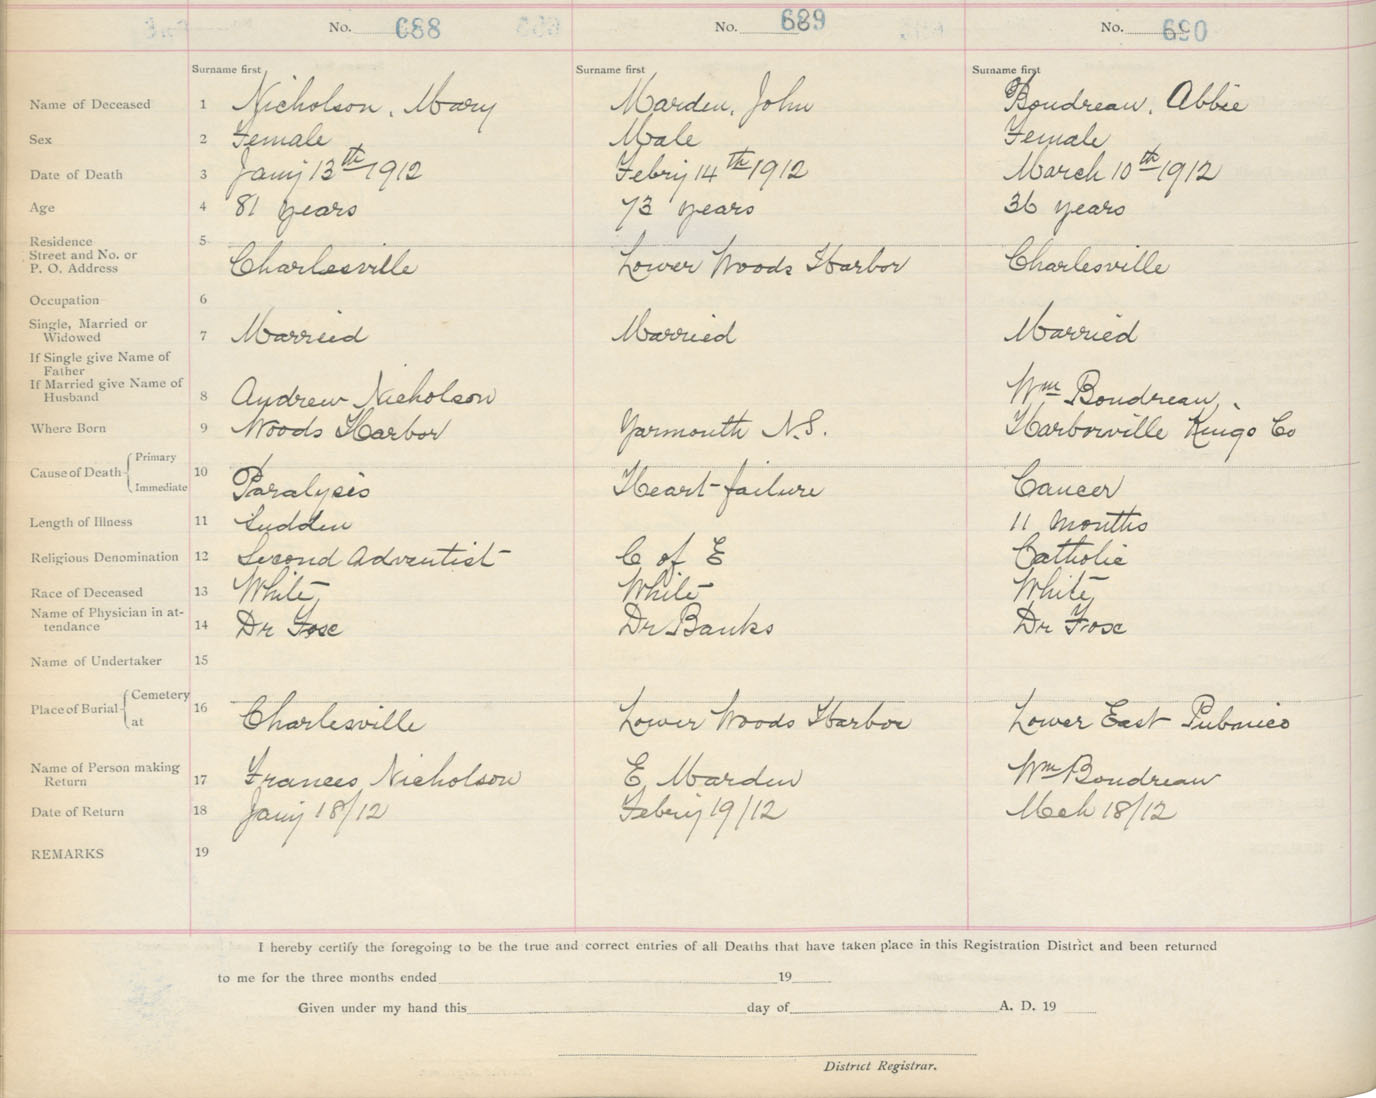 No. 688 No. 689 No. 690
Surname first Surname first Surname first
Name of Deceased 1 Nicholson, Mary Marden, John Boudreau, Abbie
Sex 2 Female Male Female
Date of Death 3 Jany 13th 1912 Febry 14th 1912 March 10th 1912
Age 4 81 years 73 years 36 years
Residence 5
Street and No. or
P. O. Address Charlesville Lower Woods Harbor Charlesville
Occupation 6
Single, Married or
Widowed 7 Married Married Married
If Single give Name of
Father
If Married give Name of
Husband 8 Andrew Nicholson Wm Boudreau
Where Born 9 Woods Harbor Yarmouth N.S. Harborville Kings Co
Cause of Death Primary 10
Immediate Paralysis Heart failure Cancer
Length of Illness 11 Sudden 11 months
Religious Denomination 12 Second Adventist C of E Catholic
Race of Deceased 13 White White White
Name of Physician in at-
tendance 14 Dr Fose Dr Banks Dr Fose
Name of Undertaker 15
Place of Burial Cemetery 16
at Charlesville Lower Woods Harbor Lower East Pubnico
Name of Person making
Return 17 Frances Nicholson E Marden Wm Boudreau
Date of Return 18 Jany 18/12 Febry 19/12 Mch 18/12
REMARKS 19
I hereby certify the foregoing to be the true and correct entries of all Deaths that have taken place in this Registration District and been returned
to me for the three months ended 19
Given under my hand this day of A. D. 19
District Registrar.